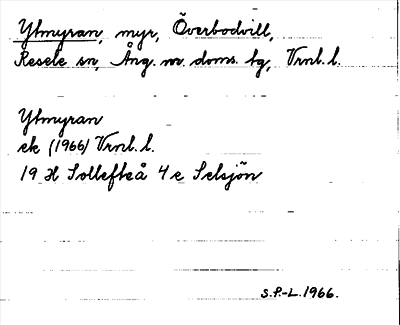 Ytmyran, myr, Överbodvill,
Resele sn, Ång. m. doms. tg, Vrnl. l.
Ytmyran
ek (1966) Vrnl. l.
19 H Sollefteå 4 e Selsjön
S.P.-L. 1966.